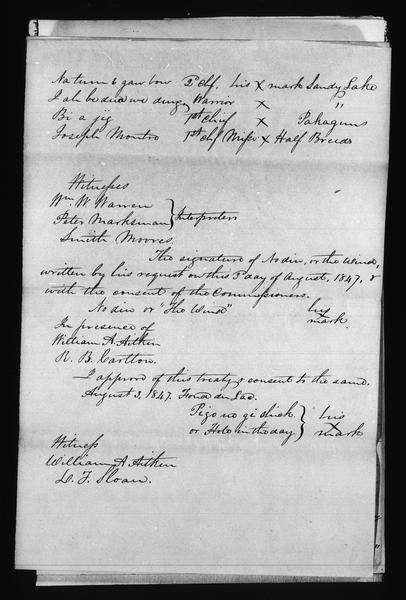 Natum e gaw bow 2d Chf. his X mark Sandy Lake
I ah be dua we dung } Warrior X "
Bi a jig 1st Chief X Pokagums
Joseph Montro 1st Chf Missi X Half Breeds
Witnesses
Wm. W. Warren
Peter Marksman } Interpreters
Smith Moores.
The signature of Nodin, or the Wind,
written by his request on this 3d day of August, 1847, &
with the consent of the Commissioners.
Nodin or "The Wind" his
mark.
In presence of
William A. Aitken
R. B. Carlton.
I approve of this treaty & consent to the same.
August 3, 1847. Fond du Lac.
Pigo no gi shick } his
or Hole in the day } X
mark
Witness
William A. Aitken
D. T. Sloan.